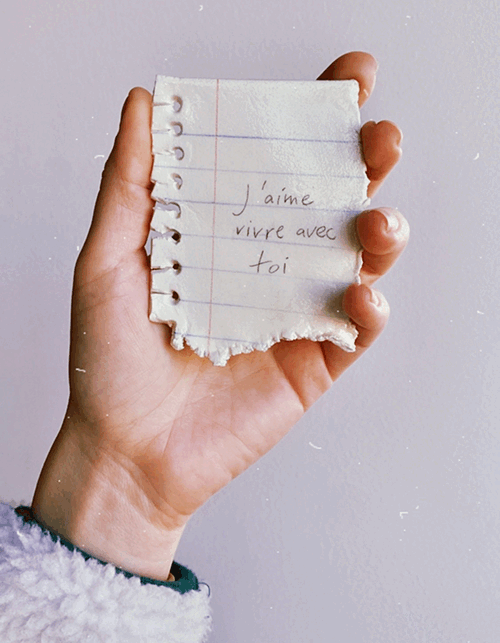 j'aime
vivre avec
toi